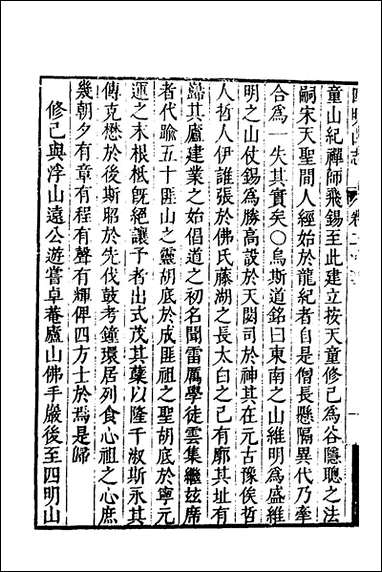 童山紀禪師飛錫至此建立按天童修己為谷隱聰之法
嗣宋天聖間人經始於龍紀者自是僧長懸隔異代乃牽
合為一失其實矣〇烏斯道銘曰東南之山維明為盛維
明之山仗錫為勝高設於天閟司於神其在元古豫俟哲
人哲人伊誰張於佛氏藤湖之長太白之己有廓其址有
歸其廬建業之始倡道之初名聞雷厲學徒雲集繼茲席
者代踰五十匪山之靈胡底於成匪祖之聖胡底於寧元
運之末根柢旣絕讓予者出式茂其蘖以隆千淑斯永其
傳克懋於後斯昭於先伐鼓考鐘環居列食心祖之心庶
幾朝夕有章有程有聲有輝俾四方士於焉是歸
修己與浮山遠公遊嘗卓菴廬山佛手巖後至四明山